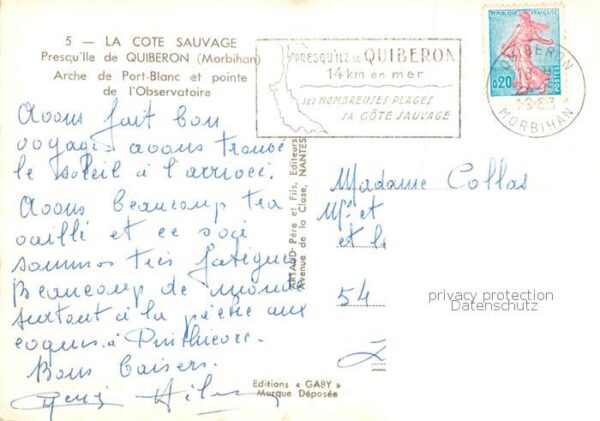 5 — LA COTE SAUVAGE
Presqu'île de QUIBERON (Morbihan)
Arche de Port-Blanc et pointe
de l'Observatoire
PRESQU'ILE DE QUIBERON
14 km en mer
SES NOMBREUSES PLAGES
SA CÔTE SAUVAGE
REPUBLIQUE FRANÇAISE
0,20
POSTES
QUIBERON
MORBIHAN
Avons fait bon
voyage avons trouvé
le soleil à l'arrivée.
Avons beaucoup tra
vaillé et ce soir
sommes très fatigués
Beaucoup de monde
surtout à la pêche aux
coques à Penthièvre.
Bons baisers.
ARTAUD Père et Fils, Editeurs
Avenue de la Close, NANTES
Madame Collas
et
54
privacy protection
Datenschutz
Editions « GABY »
Marque Déposée